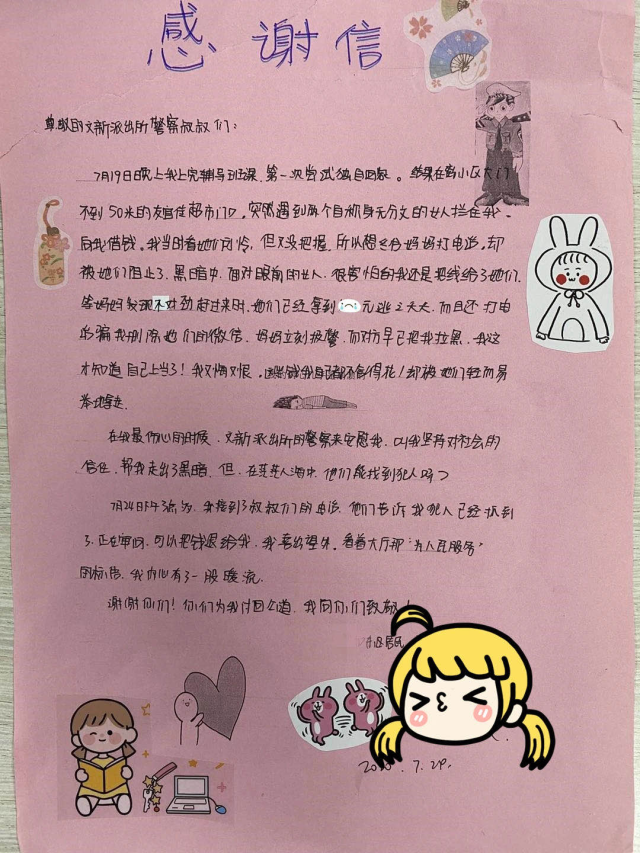 感谢信
尊敬的文新派出所警察叔叔们：
7月19日晚上我上完辅导班课，第一次尝试独自回家。结果在离小区大门
不到50米的友宜佳超市门口，突然遇到两个自称身无分文的女人拦住我，
向我借钱。我当时看她们可怜，但又没把握，所以想先给妈妈打电话，却
被她们阻止了，黑暗中，面对眼前的女人，很害怕的我还是把钱给了她们。
等妈妈发现不对劲赶过来时，她们已经拿到 元逃之夭夭，而且还打电
话骗我删除她们的微信，妈妈立刻报警，而对方早已把我拉黑，我这
才知道自己上当了！我又悔又恨，这些钱我自己都不舍得花！却被她们轻而易
举地拿走。
在我最伤心的时候，文新派出所的警察来安慰我，叫我坚持对社会的
信任，帮我走出了黑暗，但，在茫茫人海中，他们能找到犯人吗？
7月24日下午3点，我接到了叔叔们的电话，他们告诉我犯人已经抓到
了，正在审问，可以把钱退给我，我喜出望外。看着大厅那“为人民服务”
的标语，我内心有了一股暖流。
谢谢你们！你们为我讨回公道，我向你们致敬！
居民
7.29.